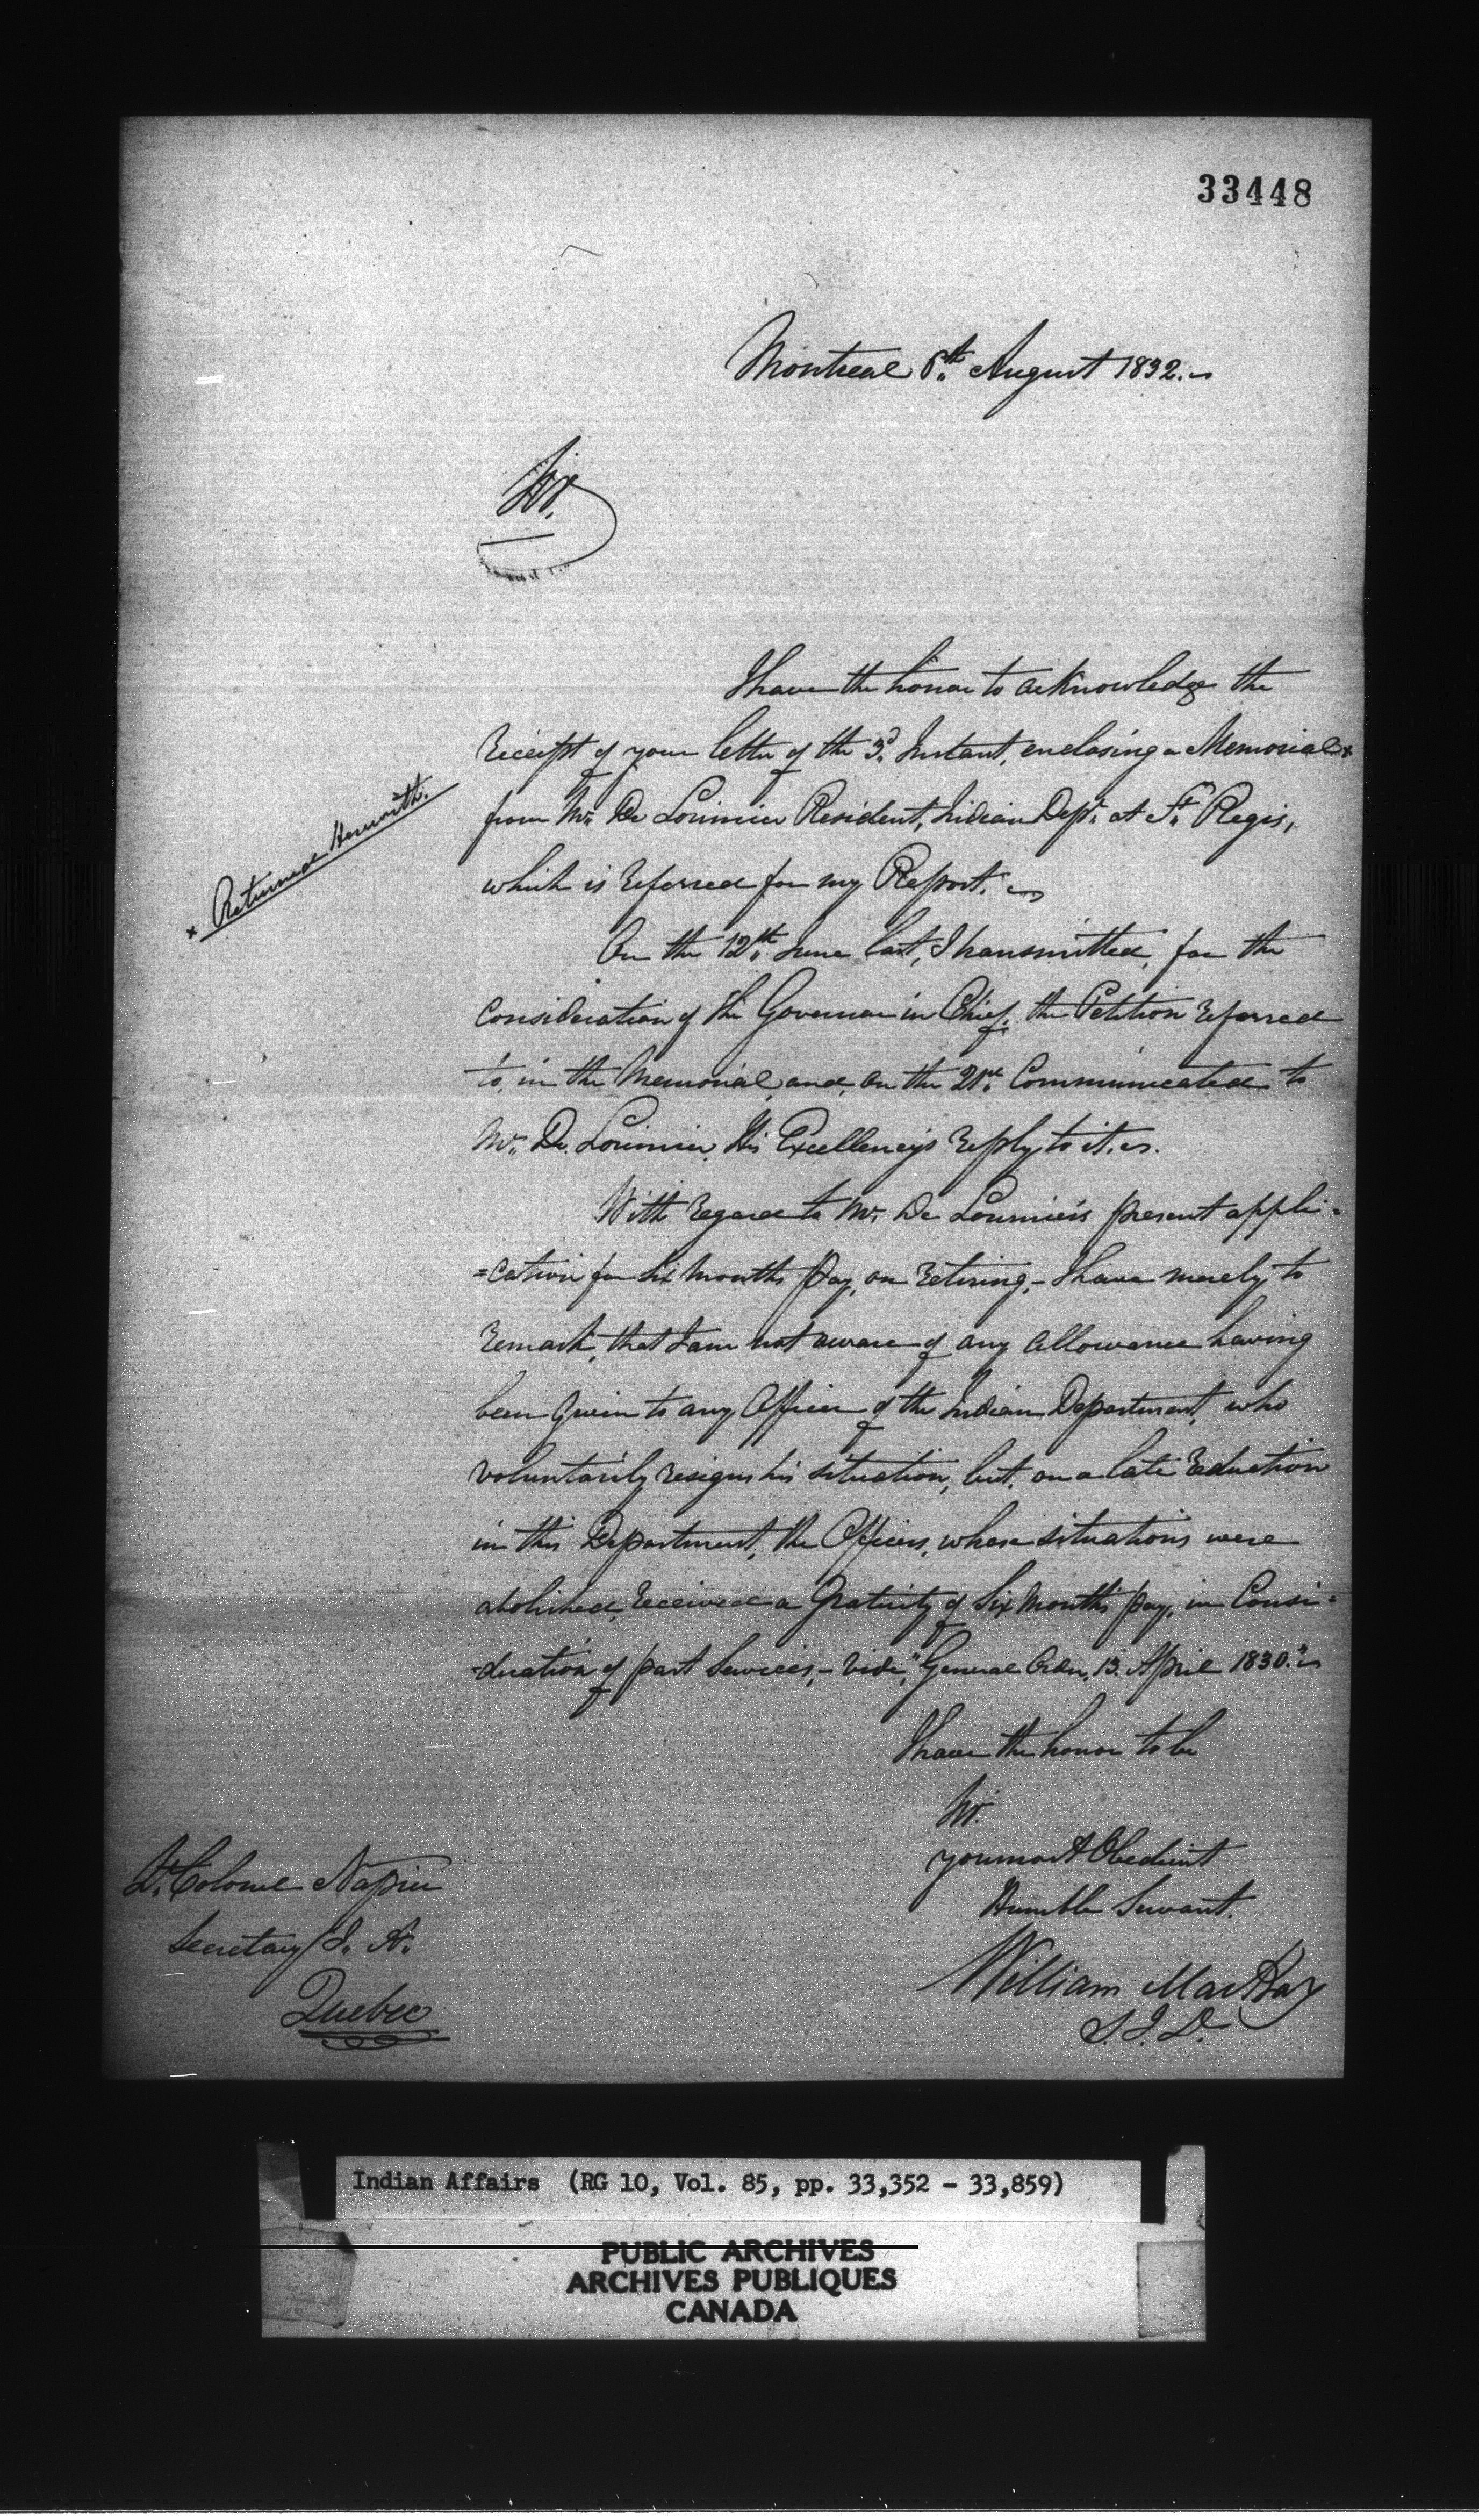 33448
Montreal 6th August 1832.
Sir,
I have the honor to acknowledge the
Receipt of your letter of the 3d Instant, enclosing a Memorial x
from Mr. De Lorimier Resident, Indian Dept. at St. Regis,
which is referred for my Report.
x Returned Herewith.
On the 12th June last, I transmitted, for the
Consideration of the Governor in Chief, the Petition referred
to, in the Memorial, and, on the 21st Communicated to
Mr. De Lorimier, His Excellency's reply to it.
With regard to Mr. De Lorimier's present appli=
=cation for six months Pay, on retiring,- I have merely to
remark, that I am not aware of any allowance having
been given to any Officer of the Indian Department, who
voluntarily resigns his situation, but, on a late reduction
in this Department, the Officers, whose situations were
abolished, received a Gratuity of Six Months pay, in Consi=
=deration of past Services,- vide, "General Order, 13. April 1830."
I have the honor to be
Sir.
your most Obedient
Humble Servant.
William MacKay
S. I. D.
Lt. Colonel Napier
Secretary I. A.
Quebec
Indian Affairs (RG 10, Vol. 85, pp. 33,352 - 33,859)
PUBLIC ARCHIVES
ARCHIVES PUBLIQUES
CANADA